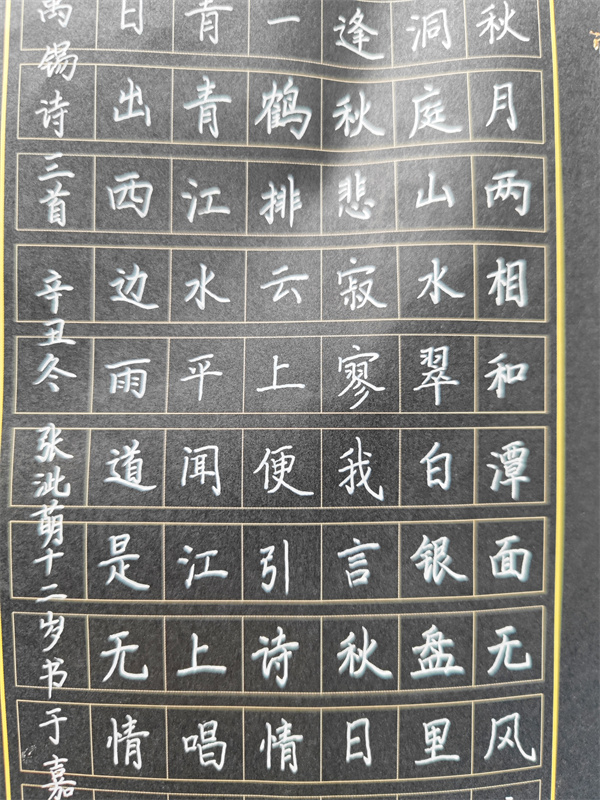 秋月两相和潭面无风
洞庭山水翠白银盘里
逢秋悲寂寥我言秋日
一鹤排云上便引诗情
青青江水平闻江上唱
日出西边雨道是无情
禹锡诗三首 辛丑冬 张泚萌十二岁书于嘉